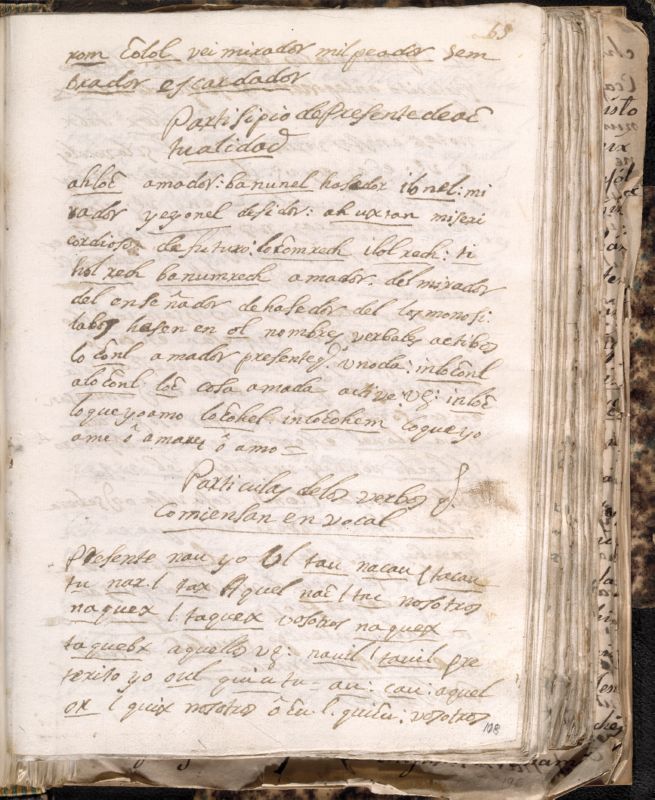 65
rom Colol vei mirador milpeador sem
brador escardador
Partisipio de presente de ac
tualidad
ahloc amador: banunel hasedor ilonel: mi
rador yegonel desidor: ah uxtan miseri
cordioso de futuro: locomrech ilol rech: ti
hol rech banumrech amador: del mirador
del enseñador de hasedor del los monosi:
labos hasen en ol nombres verbales actibos
lo conl amador presente q. v noda: inloconl
aloconl loc cosa amada active vg: inloc
lo que yo amo locohel: inlocohem lo que yo
ame ô amare ô amo =
Particulas de los verbos q.
Comiensan en vocal
Presente nau yo l tau nacau l tacau
tu nax l tax Aquel nac l tni nosotros
naquex l taquex vosotros naquex
taquebx aquellos vg: nauil l tauil pre
terito yo oul quiu tu au: cau: aquel
ox l quix nosotros ô cu l. quicu: vosotros
108